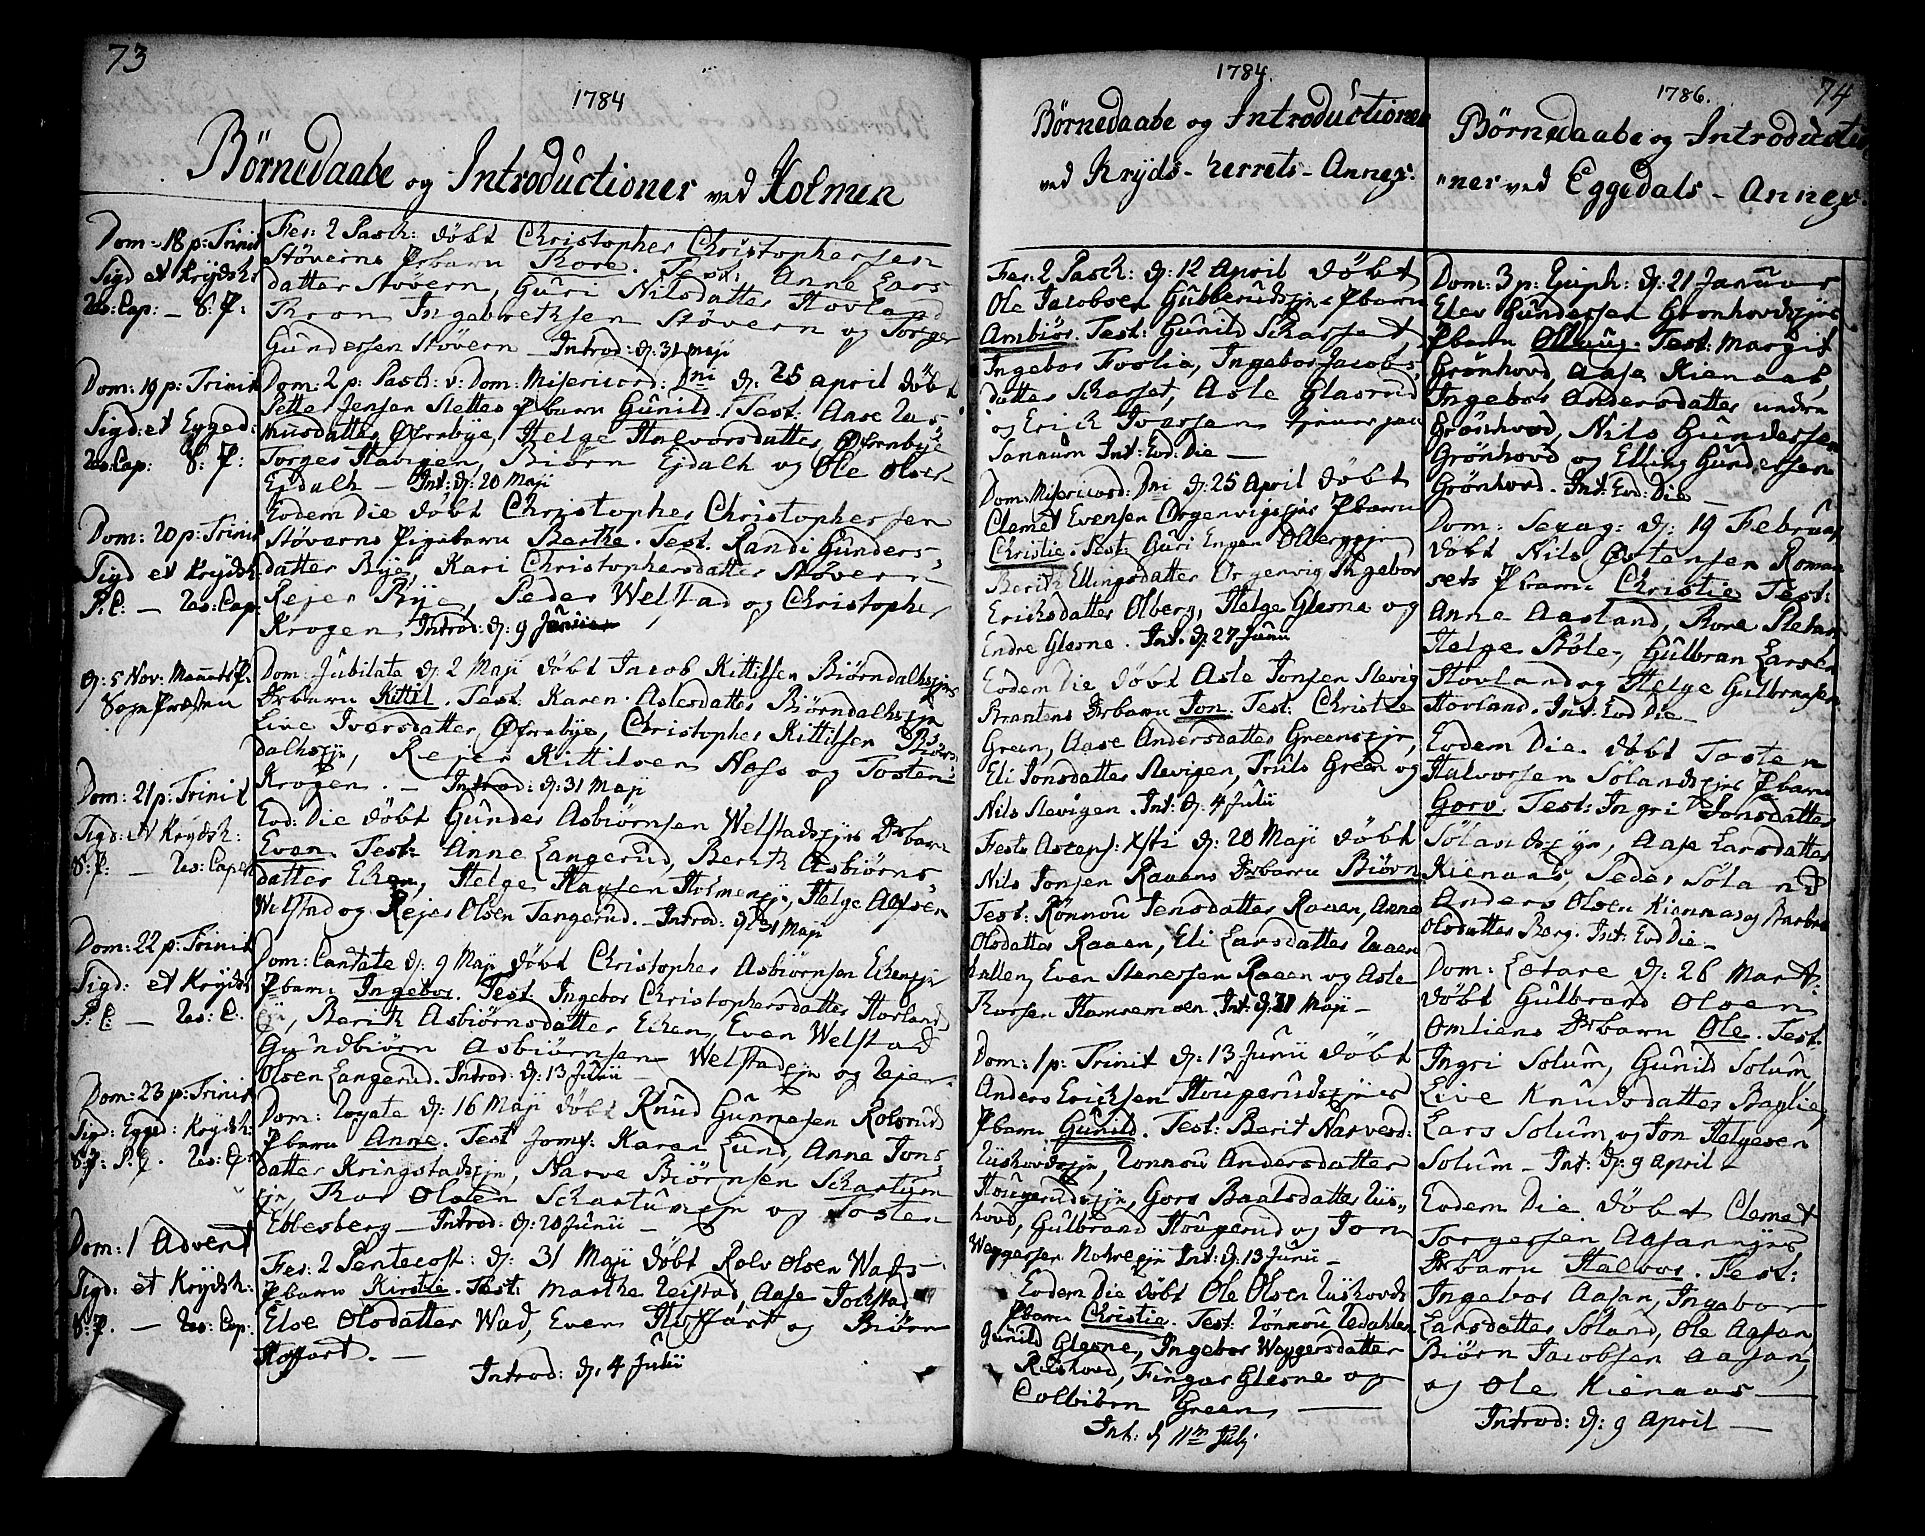 73
1784
Børnedaabe og Introductioner ved Holmen
Dom: 18 p: Trinit
Sigd et Krydsh:
Res: Cap: — S: P:
Dom: 19 p: Trinit
Sigd: et Egged:
Res: Cap: S: P:
Dom: 20 p: Trinit
Sigd et Krydsh.
P: C: — Res: Cap:
d: 5 Nov:
Dom: 21 p: Trinit
Sigd: et Krydsh:
S: P: — Res: Capell
Dom: 22 p: Trinit
Sigd: et Krydsh
P: C: — Res: C:
Dom: 23 p: Trinit
Sigd: Egged: Krydsh:
S: P: P: C. Res: C:
Dom: 1 Advent
Sigd: et Krydsh:
S: P. — Res: Cap:
Fer: 2 Pasch: døbt Christopher Christophersen
Støverns Pbarn Thore. Test: Anne Lars
datter Støvern, Guri Nilsdatter Hovland
Thron Ingebrethsen Støvern og Torger
Gundersen Støvern — Introd: d: 31 Maji
Dom: 2 p: Pasch: v: Dom: Misericord: Dni d: 25 april døbt
Petter Jensen Slettes Pbarn Gunild. Test: Aase Ras-
musdatter Øfrnbye, Helge Halvorsdatter Øfrnbye
Torger Havigen, Biørn Ejdalh og Ole Olsen
Ejdalh — Int: d: 20 Maji
Eodem Die døbt Christopher Christophersen
Støverns Pigebarn Berthe. Test. Randi Gunders-
datter Bye, Kari Christophersdatter Støvern
Rejer Bye, Peder Welstad og Christopher
Krogen. Introd: d: 9 Junii
Dom: Jubilate d: 2 Maji døbt Jacob Kittilsen Biørndalhsejes
Drbarn Kittil. Test. Karen Aslesdatter Biørndalhsejn
Live Iversdatter Øfrnbye, Christopher Kittilsen Biørn
dalhsejn, Rejer Kittilsen Næss og Tosten
Krogen. — Introd: d: 31 Maji
Eod: Die døbt Gunder Asbiørnsen Welstadsejes Drbarn
Even. Test: Anne Langerud, Berith Asbiørns
datter Eken, Helge Hansen Holmenseje, Helge Aassen
Welstad og Rejer Olsen Tangerud. — Introd: d: 31 Maji
Dom: Cantate d: 9 Maji døbt Christopher Asbiørnsen Ekensejes
Pbarn Ingebor. Test Ingebor Christophersdatter Hovlands
ejn, Berith Asbiørnsdatter Eken, Even Welstad
Gundbiørn Asbiørnsen Welstadsejn og Rejer
Olsen Langerud. Introd: d: 13 Junii —
Dom: Rogate d: 16 Maji døbt Knud Gunnesen Kolsrud
Pbarn Anne. Test Jomf: Karen Lund, Anne Jons
datter Kringstadsejn, Narve Biørnsen Skartum
ejn, Thor Olsen Skartumejn og Tosten
Ebbesberg — Introd: d: 20 Junii —
Fer: 2 Pentecost: d: 31 Maji døbt Rolv Olsen Wads
Pbarn Kirstie. Test: Marthe Reistad Aase Jokstad
Else Olsdatter Wad, Even Hoffart og Biørn
Hoffart. —
Introd: d: 4 Julii
1784.
Børnedaabe og Introductioner
ved Kryds-herrets-Annex.
Fer: 2 Pasch: d: 12 April døbt
Ole Jacobsen Gubberudsejes Pbarn
Ambiør. Test: Gunild Skarset,
Ingebor Foslie, Ingebor Jacobs-
datter Skarset, Asle Glasrud
og Erick Iversen
Sannum Int: Eod: Die —
Dom: Misericord: Dni d: 25 April døbt
Clemet Evensen Orgenvigsejes Pbarn
Christie. Test: Guri Engen Olbergsejn
Berith Ellingsdatter Orgenvig Ingebor
Ericksdatter Olberg, Helge Glesne og
Endre Glesne. Int. d: 27 Junii
Eodem Die døbt Asle Jonsen Slevig
Brantens Drbarn Jon. Test: Christie
Green, Aase Andersdatter Greensejn,
Eli Jonsdatter Slevigen, Truls Green og
Nils Slevigen. Int: d: 4 Julii
Festo Ascens: Xsti d: 20 Maji døbt
Nils Jonsen Raaens Drbarn Biørn
Test: Rønnou Jensdatter Raaen, Anne
Olsdatter Raaen, Eli Larsdatter Raaen
hallen, Even Stenersen Raaen og Asle
Thorsen Hamremoen Int: d: 31 Maji —
Dom: 1 p: Trinit d: 13 Junii døbt
Anders Ericksen Hougerudsejes
Pbarn Gunild. Test: Berit Narvesd:
Riishovdsejn, Ronnou Andersdatter
Hougerudsejn, Gors Baalsdatter Riis-
hovd, Gulbrand Hougerud og Jon
Weggersen Nohrejn Int: d: 13 Junii —
Eodem Die døbt Ole Olsen Riishovds
Pbarn Christie. Test: Rønnou Redahlen
Gunild Glesne, Ingebor Weggersdatter
Riishovd, Fingar Glesne og
Colbiörn Green —
Int: d 11m Julj
74
1786.
Børnedaabe og Introductio
"ner ved Eggedals-Annex.
Dom: 3 p: Epiph: d: 21 Januar
Elev Gundersen Grønhovdsejes
Pbarn Ollaug. Test: Margit
Grønhovd, Aase Kienaas,
Ingebor Andersdatter undru
Grønhovd, Nils Gundersen
Grønhovd og Elling Gundersen
Grønhovd. Int: Eod: Die —
Dom: Sexag: d: 19 Februar
døbt Nils Østensen Roman
sets Pbarn Christie Test:
Anne Aasland, Thore Pletan
Helge Støle, Gulbran Larsen
Hovland og Helge Gulbransen
Hovland. Int: Eod Die —
Eodem Die. døbt Tosten
Halvorsen Sølandsejes Pbarn
Gorv. Test: Ingri Jonsdatter
Sølandsejn, Aase Larsdatter
Kienaas, Peder Søland
Anders Olsen Kiennas og Barbro
Olsdatter Berg. Int: Eod Die —
Dom: Lætare d: 26 Mart:
døbt Gulbrand Olsen
Omliens Drbarn Ole. Test:
Ingri Solum, Gunild Solum,
Live Knudsdatter Baglie,
Lars Solum og Jon Helgesen
Solum — Int: d: 9 April —
Eodem Die. døbt Clemet
Torgersen Aasannejes
Drbarn Halvor. Test:
Ingebor Aasan, Ingebor
Larsdatter Søland, Ole Aasan,
Biørn Jacobsen Aasan,
og Ole Kienaas —
Introd: d: 9 April —